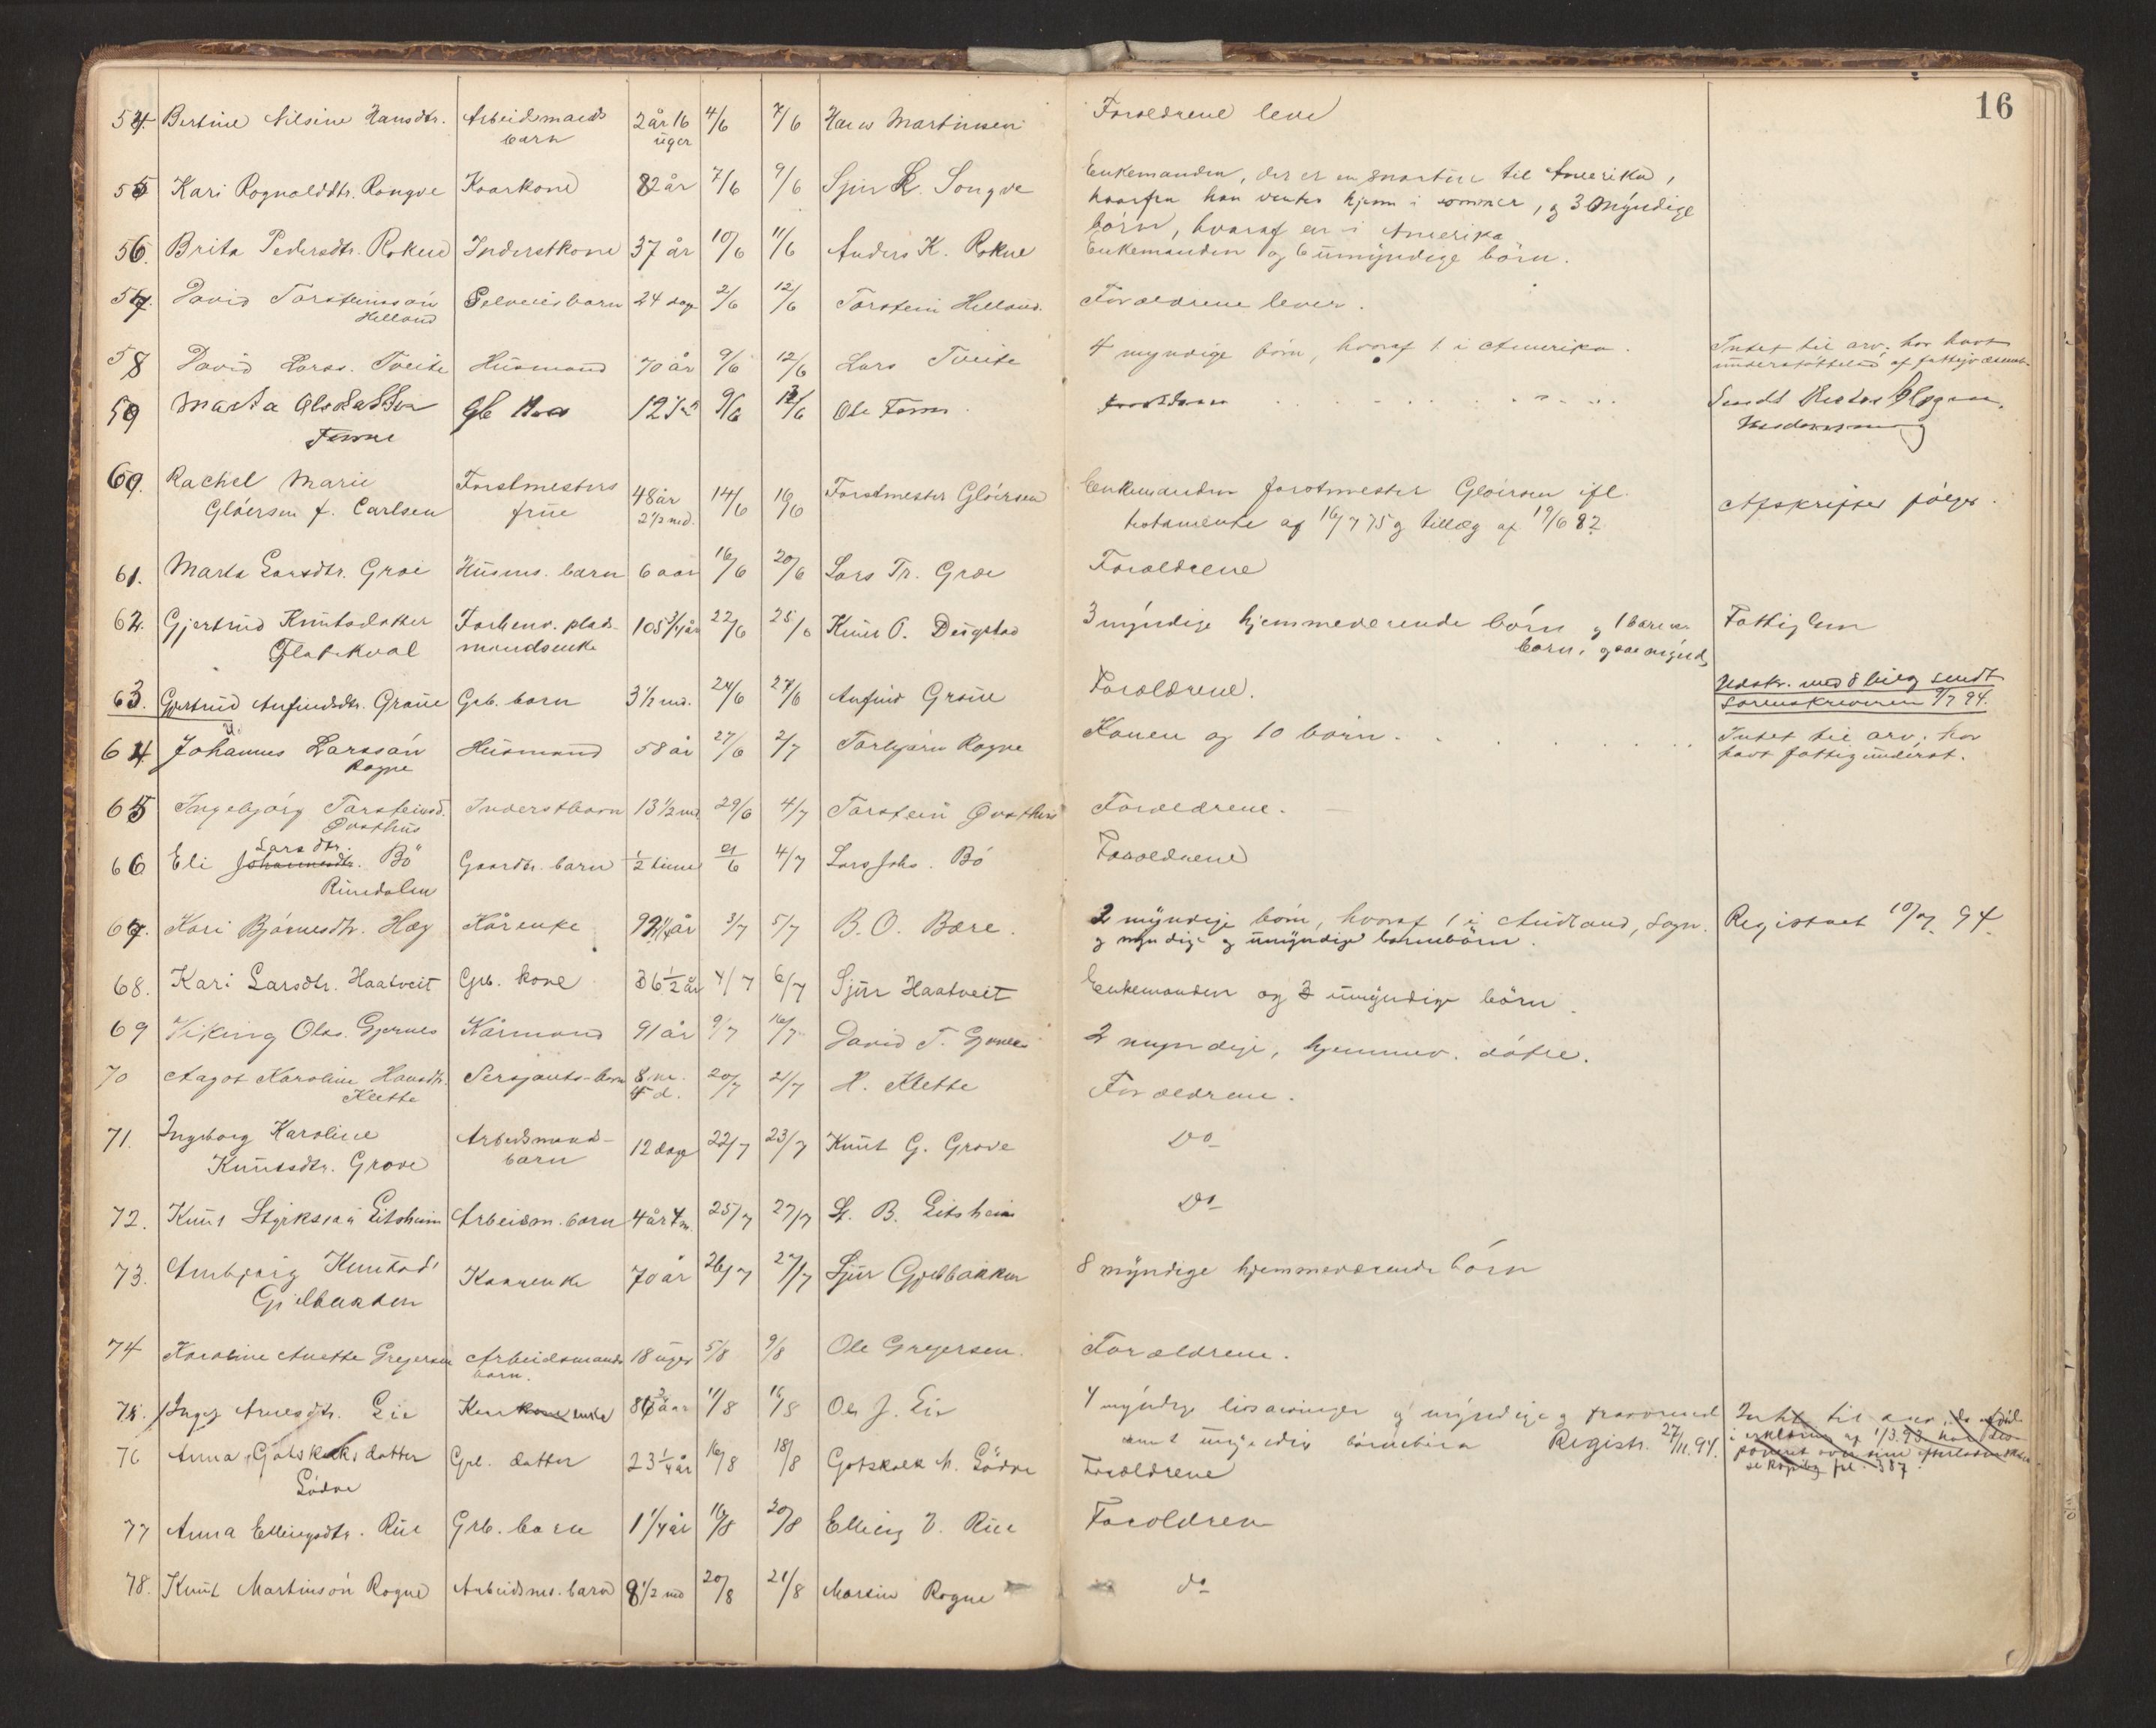 16
54. Bertine Nilsine Hansdtr. Arbeidsmands 2 år 16 4/6 7/6 Hans Martinsen Forældrene lever
barn uger
55 Kari Rognalddtr. Rongve Kaarkone 82 år 7/6 9/6 Sjur L. Songve Enkemanden, der er en snartur til Amerika,
hvorfra han ventes hjem i sommer, og 3 myndige
börn, hvoraf en i Amerika
56. Brita Pedersdtr. Rokne Inderstkone 37 år 10/6 11/6 Anders K. Rokne Enkemanden og 6 umyndige börn.
57. David Torsteinssön Selveiersbarn 24 dage 2/6 12/6 Torstein Helland. Forældrene lever.
Helland
58 David Larss. Tveite Husmand 70 år 9/6 12/6 Lars Tveite 4 myndige börn, hvoraf 1 i Amerika. Intet til arv; har havt
understöttelse af fattigvæsenet
59 Marta Olsdatter 9/6 12/6 Ole Sendt
Finne
60. Rachel Marie Forstmesters 48 år 14/6 16/6 Forstmester Glöersen Enkemanden forstmester Glöersen ifl. Afskrifter fölger.
Glöersen f. Carlsen frue 2 1/2 md. testamente af 16/7 75 og tillæg af 19/6 82
61. Marta Larsdtr. Groe Husms. barn 6 aar 16/6 20/6 Lars Tr. Groe Forældrene
62. Gjertrud Knutsdatter Forhenv. plads- 105 3/4 år 22/6 25/6 Knut O. Dugstad 3 myndige hjemmeværende börn og 1 barne- Fattiglem
Flatekval mandsenke barn, ogsaa myndig
63. Gjertrud Anfindsdtr. Graue Grb. barn 3 1/2 md. 24/6 27/6 Anfind Graue Forældrene. Udskr. med 8 bilag sendt
Sorenskriveren 9/7 94.
64 Johannes Larssön Husmand 58 år 27/6 2/7 Torbjörn Rogne Konen og 10 börn. Intet til arv; har
Rogne havt fattigunderst.
65 Ingebjörg Torsteinsd. Inderstbarn 13 1/2 md 29/6 4/7 Torstein Qvasthus Forældrene.
Øvsthus
Larsdtr.
66 Eli Johannesdtr. Bö Gaardbr. barn 1/2 time 21/6 4/7 Lars Johs. Bö Forældrene
Rundalen
67. Kari Björnesdtr. Hæg Kårenke 92 1/4 år 3/7 5/7 B. O. Bære. 2 myndige börn, hvoraf 1 i Aurland, Sogn. Registreret 10/7 94
og myndige og umyndige barnebörn.
68. Kari Larsdtr. Haatveit Grb. kone 36 1/2 år 4/7 6/7 Sjur Haatveit Enkemanden og 3 umyndige börn.
69 Viking Olss. Gjernes Kårmand 91 år 9/7 16/7 David T. Gjernes 2 myndige, hjemmev. dötre.
70 Aagot Karoline Hansdtr. Sersjants-barn 8 m. 20/7 21/7 H. Klette Forældrene.
Klette 4 d.
71. Ingeborg Karoline Arbeidsmands- 12 dage 22/7 23/7 Knut G. Grove Do
Knutsdtr. Grove barn
72. Knut Styrkssön Eitsheim Arbeidsm. barn 4 år 4 m. 25/7 27/7 St. B. Eitsheim Do
73. Ambjörg Knutsd. Kaarenke 70 år 26/7 27/7 Sjur Gjelbakken 8 myndige hjemmeværende börn
Gjelbakken
74 Karoline Anette Gregersen Arbeidsmands 18 uger 5/8 9/8 Ole Gregersen. Forældrene.
barn.
75. Inger Arnesdtr. Lie enke 86 3/4 aar 11/8 16/8 Ole J. Lie 4 myndige livsarvinger og myndige og fraværende Intet til arv, da afdöde
samt umyndige börnebörn Registr. 27/11. 94. i erklæring af 1/3. 93 har
76 Anna Gotskalksdatter Grb. datter 23 1/4 år 16/8 18/8 Gotskalk M. Lödve Forældrene
Lödve se kopibog fol. 387.
77 Anna Ellingsdtr. Rue Grb. barn 1 1/4 år 16/8 20/8 Elling V. Rue Forældren
78. Knut Martinsön Rogne Arbeidsms. barn 8 1/2 md 20/8 21/8 Martin Rogne do